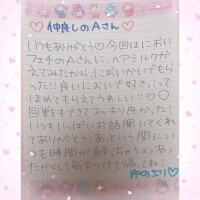 仲良しのAさん♡
いつもありがとう♡今回はにおい
フェチのAさんに、ヘアミルクか
えてみたから、においかいでもら
った!!良いにおいで好き!って
ほめてもらえてうれしい!!♡○
回戦もできてスッキリ良かった!
いつもいっぱいお話聞いてくれ
てありがとう;あっという間にい
つも時間が
かくして気をつけて帰ってね!
ゆのより♡